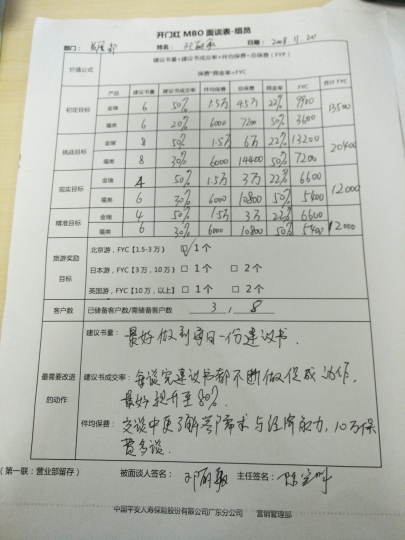 开门红 MBO 面谈表-组员
部门： 姓名： 日期： 2018.11.20
价值公式 建议书量×建议书成交率×件均保费=总保费（FYP）
保费*佣金率=FYC
产品 建议书量 建议书成交率 件均保费 总保费 佣金率 FYC 合计 FYC
初定目标 金瑞 6 50% 1.5万 4.5万 22% 9900 13500
福类 6 20% 6000 7200 50% 3600
挑战目标 金瑞 8 50% 1.5万 6万 22% 13200 20400
福类 8 30% 6000 14400 50% 7200
现实目标 金瑞 4 50% 1.5万 3万 22% 6600 12000
福类 6 30% 6000 10800 50% 5400
精准目标 金瑞 4 50% 1.5万 3万 22% 6600 12000
福类 6 30% 6000 10800 50% 5400
旅游奖励目标 北京游，FYC【1.5-3万】 ☑1个
日本游，FYC【3万，10万】 □1个 □2个
英国游，FYC【10万，以上】 □1个 □2个
客户数 已储备客户数/需储备客户数 3，8
最需要改进的动作 建议书量：
最好做到每日一份建议书．
建议书成交率：每谈完建议书都不断做促成动作，
最好提升至80%．
件均保费：交谈中更了解客户需求与经济能力，10万保
费多谈．
（第一联：营业部留存） 被面谈人签名： 主任签名：
中国平安人寿保险股份有限公司广东分公司 营销管理部